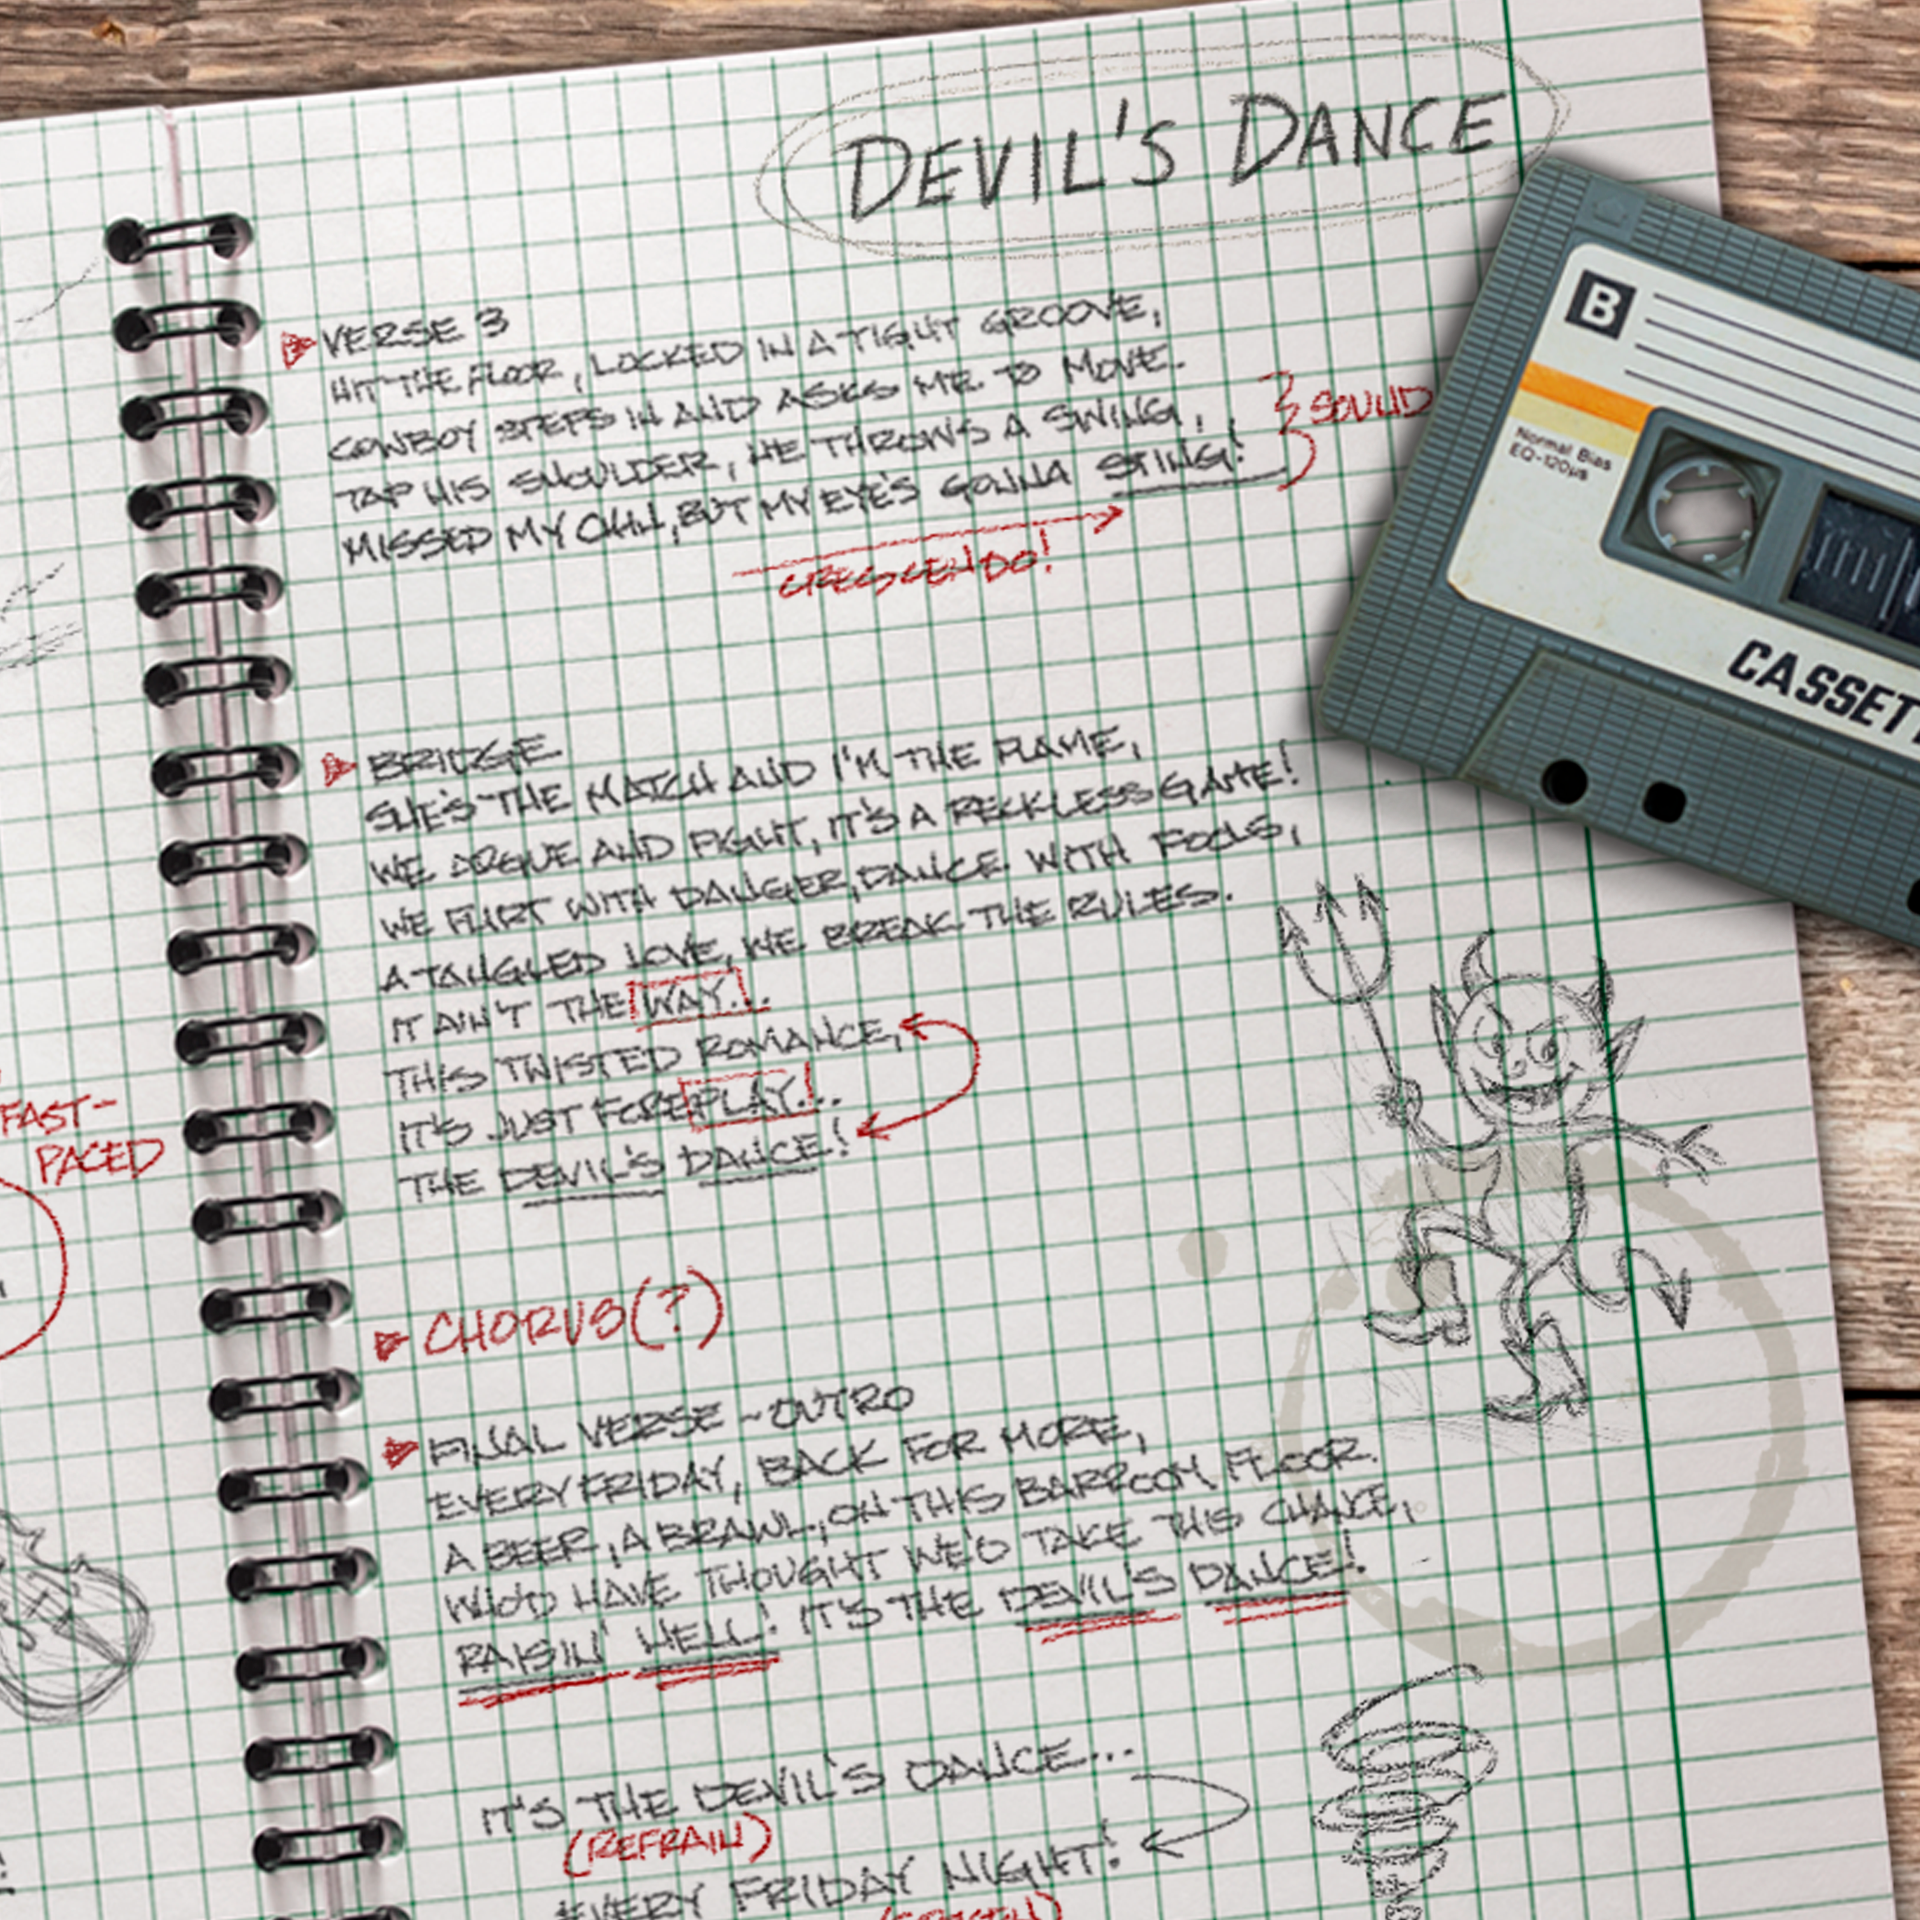 DEVIL'S DANCE
VERSE 3
HIT THE FLOOR, LOCKED IN A TIGHT GROOVE,
COWBOY STEPS IN AND ASKS ME TO MOVE.
TAP HIS SHOULDER, HE THROWS A SWING,
MISSED MY CHIN, BUT MY EYE'S GONNA STING!
SOLID
CRESCENDO!
BRIDGE
SHE'S THE MATCH AND I'M THE FLAME,
WE ARGUE AND FIGHT, IT'S A RECKLESS GAME!
WE FLIRT WITH DANGER, DANCE WITH FOOLS,
A TANGLED LOVE, WE BREAK THE RULES.
IT AIN'T THE WAY...
THIS TWISTED ROMANCE,
IT'S JUST FOREPLAY...
THE DEVIL'S DANCE!
CHORUS(?)
FINAL VERSE - OUTRO
EVERY FRIDAY, BACK FOR MORE,
A BEER, A BRAWL, ON THIS BARROOM FLOOR.
WHO'D HAVE THOUGHT WE'D TAKE THIS CHANCE,
RAISIN' HELL! IT'S THE DEVIL'S DANCE!
IT'S THE DEVIL'S DANCE...
(REFRAIN)
EVERY FRIDAY NIGHT!
FAST-
PACED
B
Normal Bias
EQ-120μs
CASSET